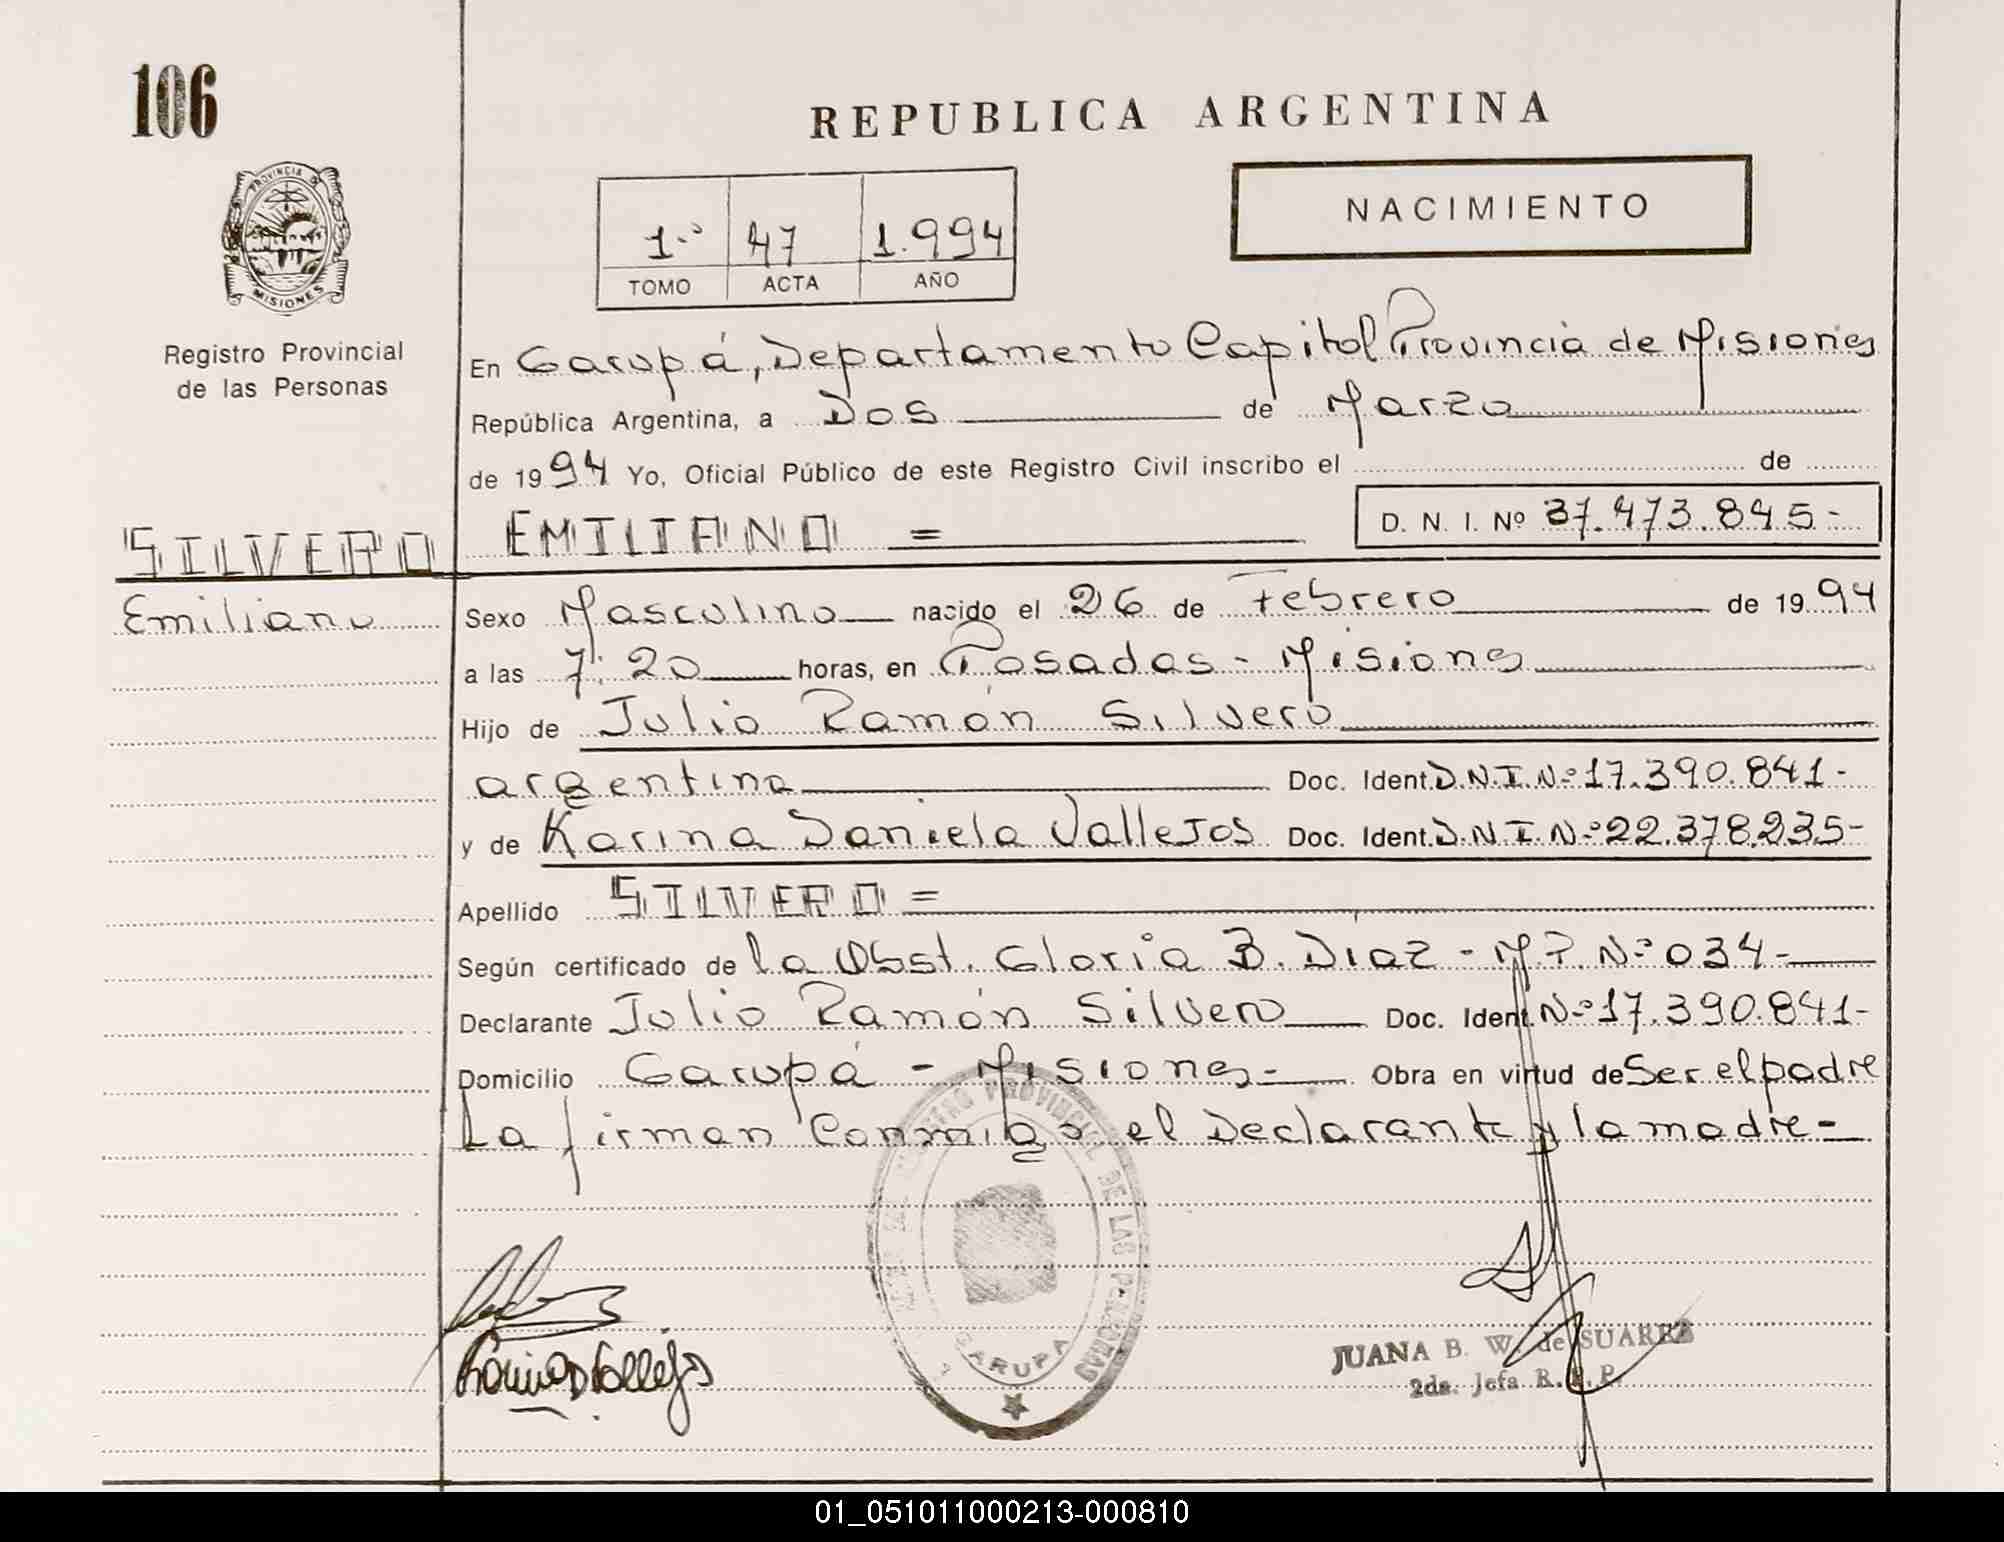 106
REPUBLICA ARGENTINA
PROVINCIA DE
MISIONES
1.º 47 1.994
TOMO ACTA AÑO
NACIMIENTO
Registro Provincial
de las Personas
En Garupá, Departamento Capital Provincia de Misiones
República Argentina, a Dos de Marzo
de 1994 Yo, Oficial Público de este Registro Civil inscribo el de
SILVERO EMILIANO = D. N. I. Nº 37.473.845-
Emiliano
Sexo Masculino nacido el 26 de Febrero de 1994
a las 7:20 horas, en Posadas - Misiones
Hijo de Julio Ramón Silvero
argentina Doc. Ident. D.N.I.Nº 17.390.841-
y de Karina Daniela Vallejos Doc. Ident. D.N.I.Nº 22.378.235-
Apellido SILVERO =
Según certificado de la Obst. Gloria B. Díaz - M.P. Nº 034-
Declarante Julio Ramón Silvero Doc. Ident. Nº 17.390.841-
Domicilio Garupá - Misiones- Obra en virtud de Ser el padre
La firman Conmigo el Declarante y la madre-
REGISTRO PROVINCIAL DE LAS PERSONAS
GARUPA
Karina D Vallejos
JUANA B. W. de SUAREZ
2da. Jefa R. P. P.
01_051011000213-000810